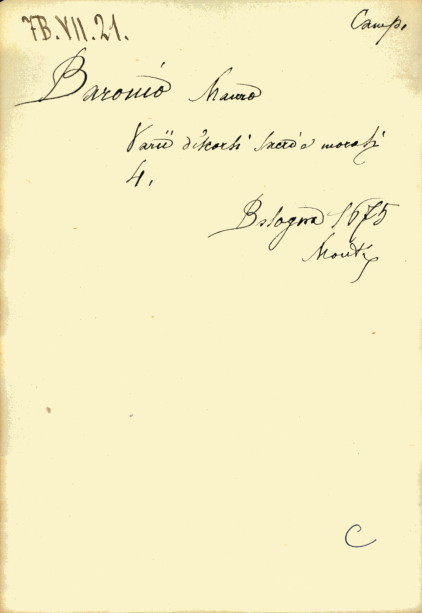 7B.VII.21.
Camp.
Baronio Mauro
Varii discorsi sacri e morali
4.
Bologna 1675
Monti
C